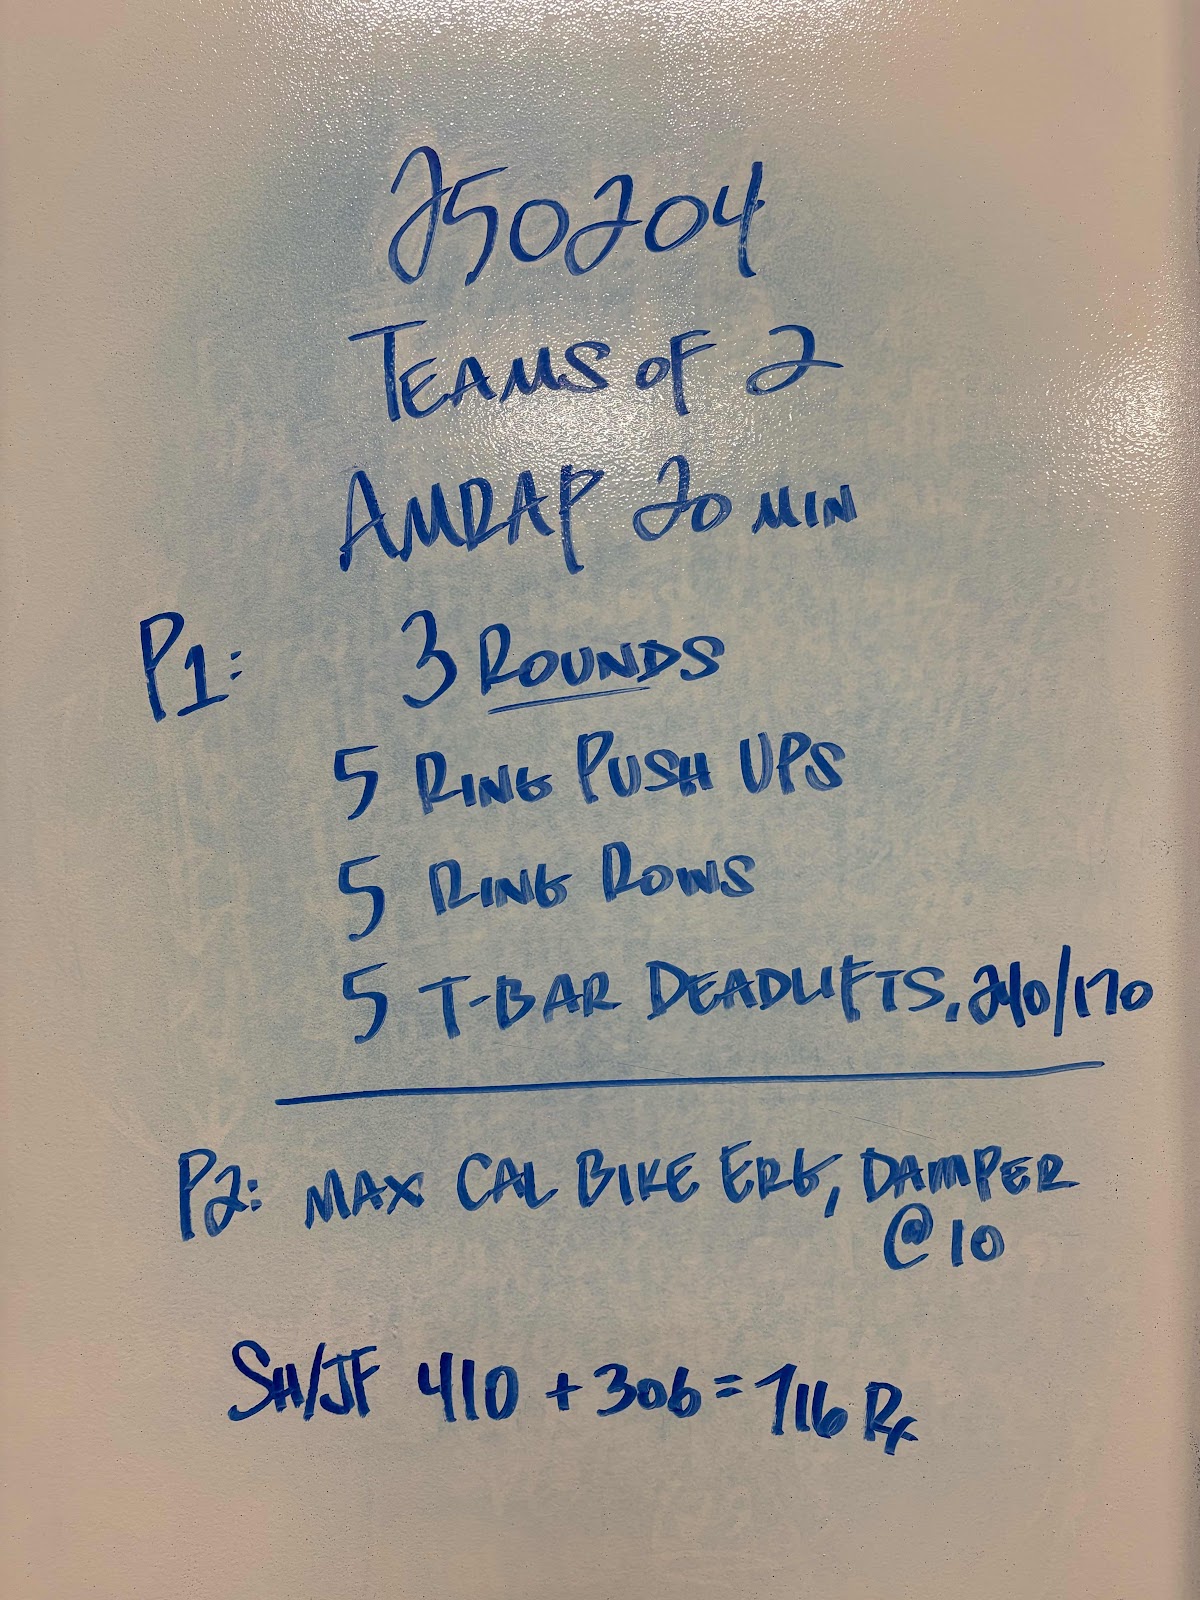 250204
TEAMS OF 2
AMRAP 20 MIN
P1: 3 ROUNDS
5 RING PUSH UPS
5 RING ROWS
5 T-BAR DEADLIFTS, 240/170
P2: MAX CAL BIKE ERG, DAMPER
@10
SH/JF 410 + 306 = 716 Rx